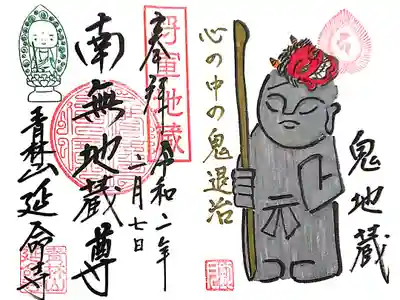 鬼地蔵
心の中の鬼退治
奉拝
令和二年
二月七日
将軍地蔵
南無地蔵尊
青林山延命寺